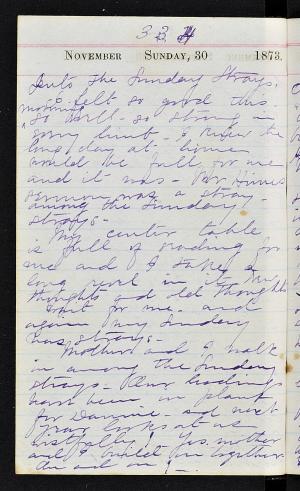 334
November Sunday, 30 1873.
Into the Sunday Strays.
so felt so good this
morning
so well - so strong in
every limb - I knew the
long day at home
would be full for me
and it was - Br Hines
sermon was a stray
among the Sunday
strays -
My center table
is full of reading for
me and I take a
long rest in it. New
thoughts and old thoughts
wait for me. and
again my Sunday
has strays -
Mother and I walk
in among the Sunday
strays - Our
have been in
for Dannie - and next
year looks at us
wistfully! Yes, mother
and I build on together